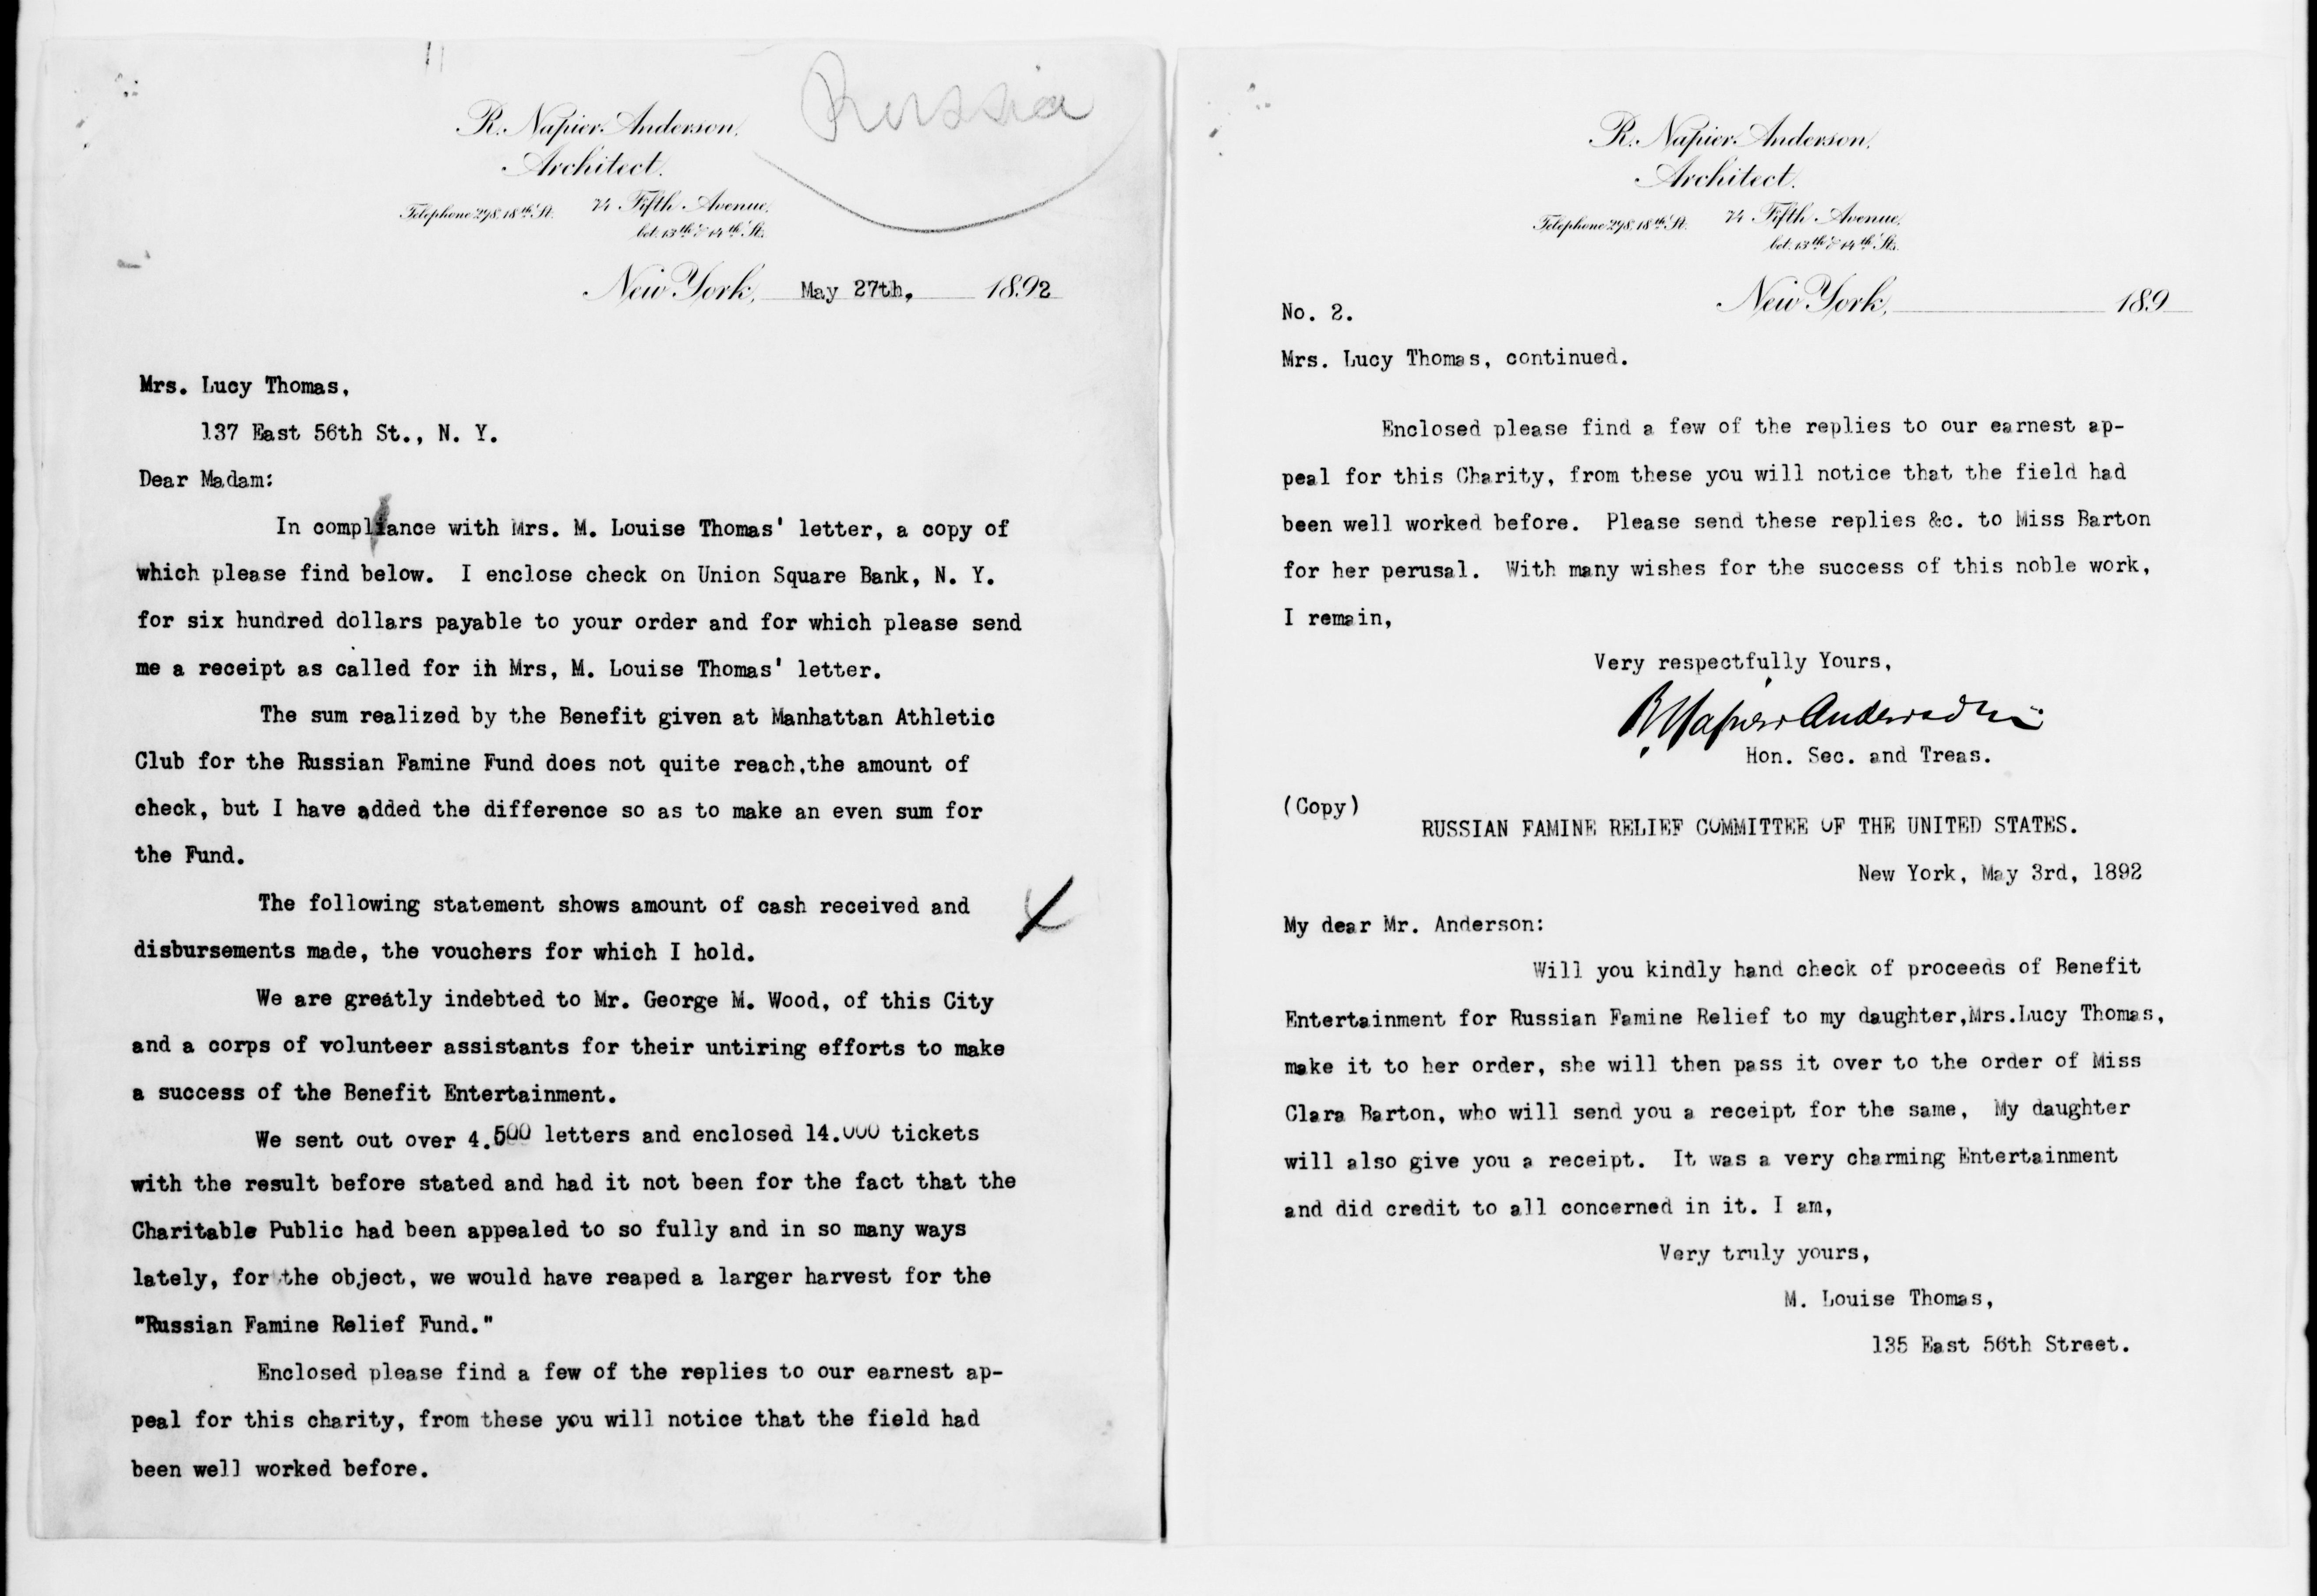 Russia
R. Napier Anderson,
Architect.
Telephone 298. 18th St. 74 Fifth Avenue,
bet. 13th & 14th Sts.
New York, May 27th, 1892
Mrs. Lucy Thomas,
137 East 56th St., N. Y.
Dear Madam:
In compliance with Mrs. M. Louise Thomas' letter, a copy of
which please find below. I enclose check on Union Square Bank, N. Y.
for six hundred dollars payable to your order and for which please send
me a receipt as called for in Mrs, M. Louise Thomas' letter.
The sum realized by the Benefit given at Manhattan Athletic
Club for the Russian Famine Fund does not quite reach,the amount of
check, but I have added the difference so as to make an even sum for
the Fund.
The following statement shows amount of cash received and
disbursements made, the vouchers for which I hold.
We are greatly indebted to Mr. George M. Wood, of this City
and a corps of volunteer assistants for their untiring efforts to make
a success of the Benefit Entertainment.
We sent out over 4.500 letters and enclosed 14.000 tickets
with the result before stated and had it not been for the fact that the
Charitable Public had been appealed to so fully and in so many ways
lately, for the object, we would have reaped a larger harvest for the
"Russian Famine Relief Fund."
Enclosed please find a few of the replies to our earnest ap-
peal for this charity, from these you will notice that the field had
been well worked before.
R. Napier Anderson,
Architect.
Telephone 298. 18th St. 74 Fifth Avenue,
bet. 13th & 14th Sts.
New York, 189
No. 2.
Mrs. Lucy Thomas, continued.
Enclosed please find a few of the replies to our earnest ap-
peal for this Charity, from these you will notice that the field had
been well worked before. Please send these replies &c. to Miss Barton
for her perusal. With many wishes for the success of this noble work,
I remain,
Very respectfully Yours,
R Napier Anderson
Hon. Sec. and Treas.
(Copy)
RUSSIAN FAMINE RELIEF COMMITTEE OF THE UNITED STATES.
New York, May 3rd, 1892
My dear Mr. Anderson:
Will you kindly hand check of proceeds of Benefit
Entertainment for Russian Famine Relief to my daughter,Mrs.Lucy Thomas,
make it to her order, she will then pass it over to the order of Miss
Clara Barton, who will send you a receipt for the same, My daughter
will also give you a receipt. It was a very charming Entertainment
and did credit to all concerned in it. I am,
Very truly yours,
M. Louise Thomas,
135 East 56th Street.